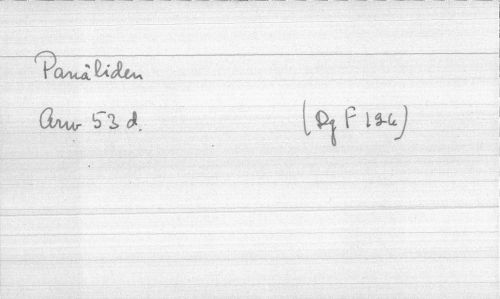 Panåliden
Arw 53 d. (Dg F 124)